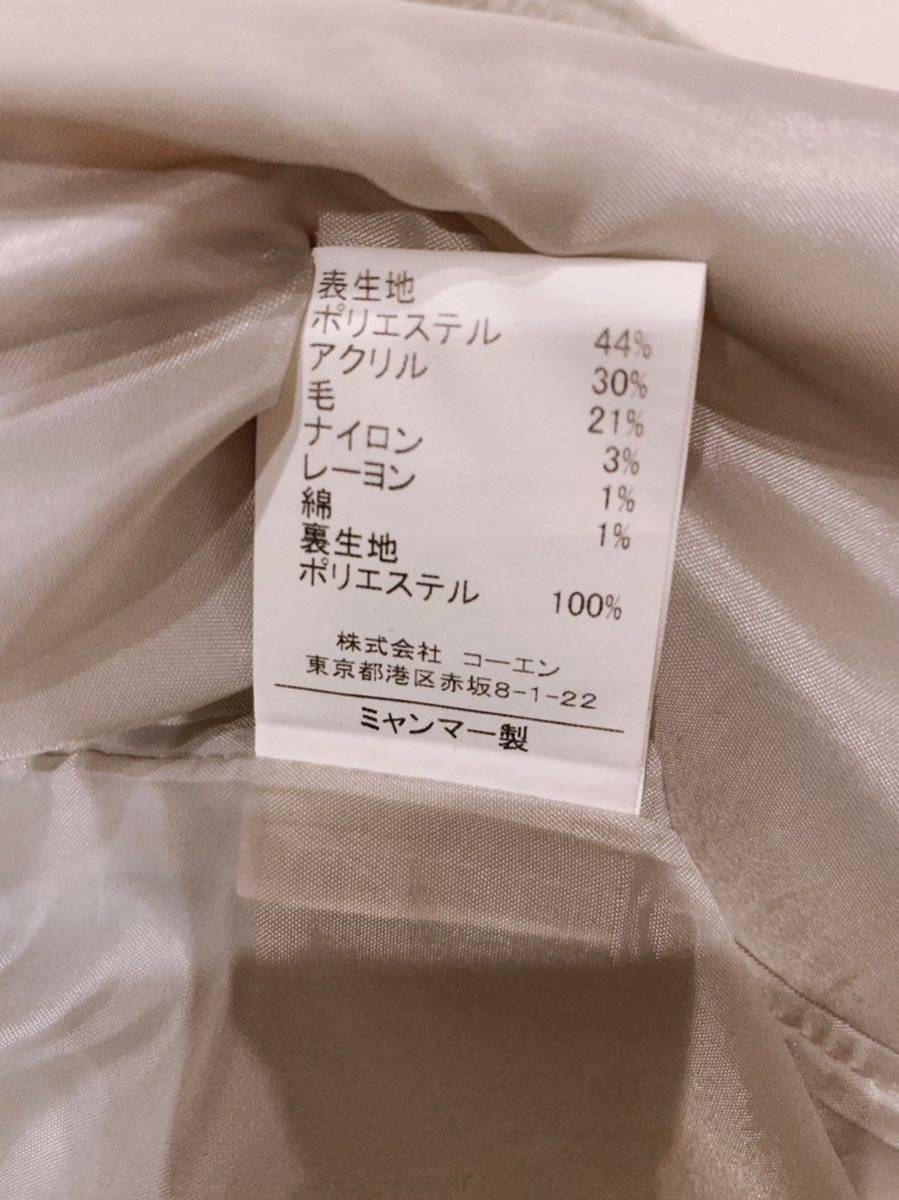 表生地
ポリエステル 44%
アクリル 30%
毛 21%
ナイロン 3%
レーヨン 1%
綿 1%
裏生地
ポリエステル 100%
株式会社 コーエン
東京都港区赤坂8-1-22
ミャンマー製